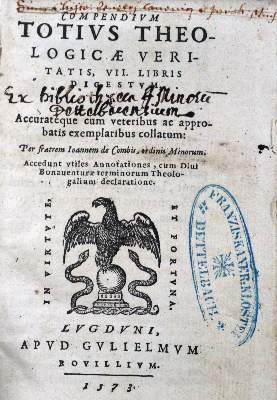 COMPENDIVM
TOTIVS THEO-
LOGICÆ VERI-
TATIS, VII. LIBRIS
DIGESTVM
Ex bibliotheca ff Minorũ
Dettelbacensium
Accuratéque cum veteribus ac appro-
batis exemplaribus collatum:
Per fratrem Ioannem de Combis, ordinis Minorum.
Accedunt vtiles Annotationes, cum Diui
Bonauenturæ terminorum Theolo-
galium declaratione.
IN VIRTVTE,
ET FORTVNA.
FRANZISKANER-KLOSTER
DETTELBACH
LVGDVNI,
APVD GVLIELMVM
ROVILLIVM.
1573.